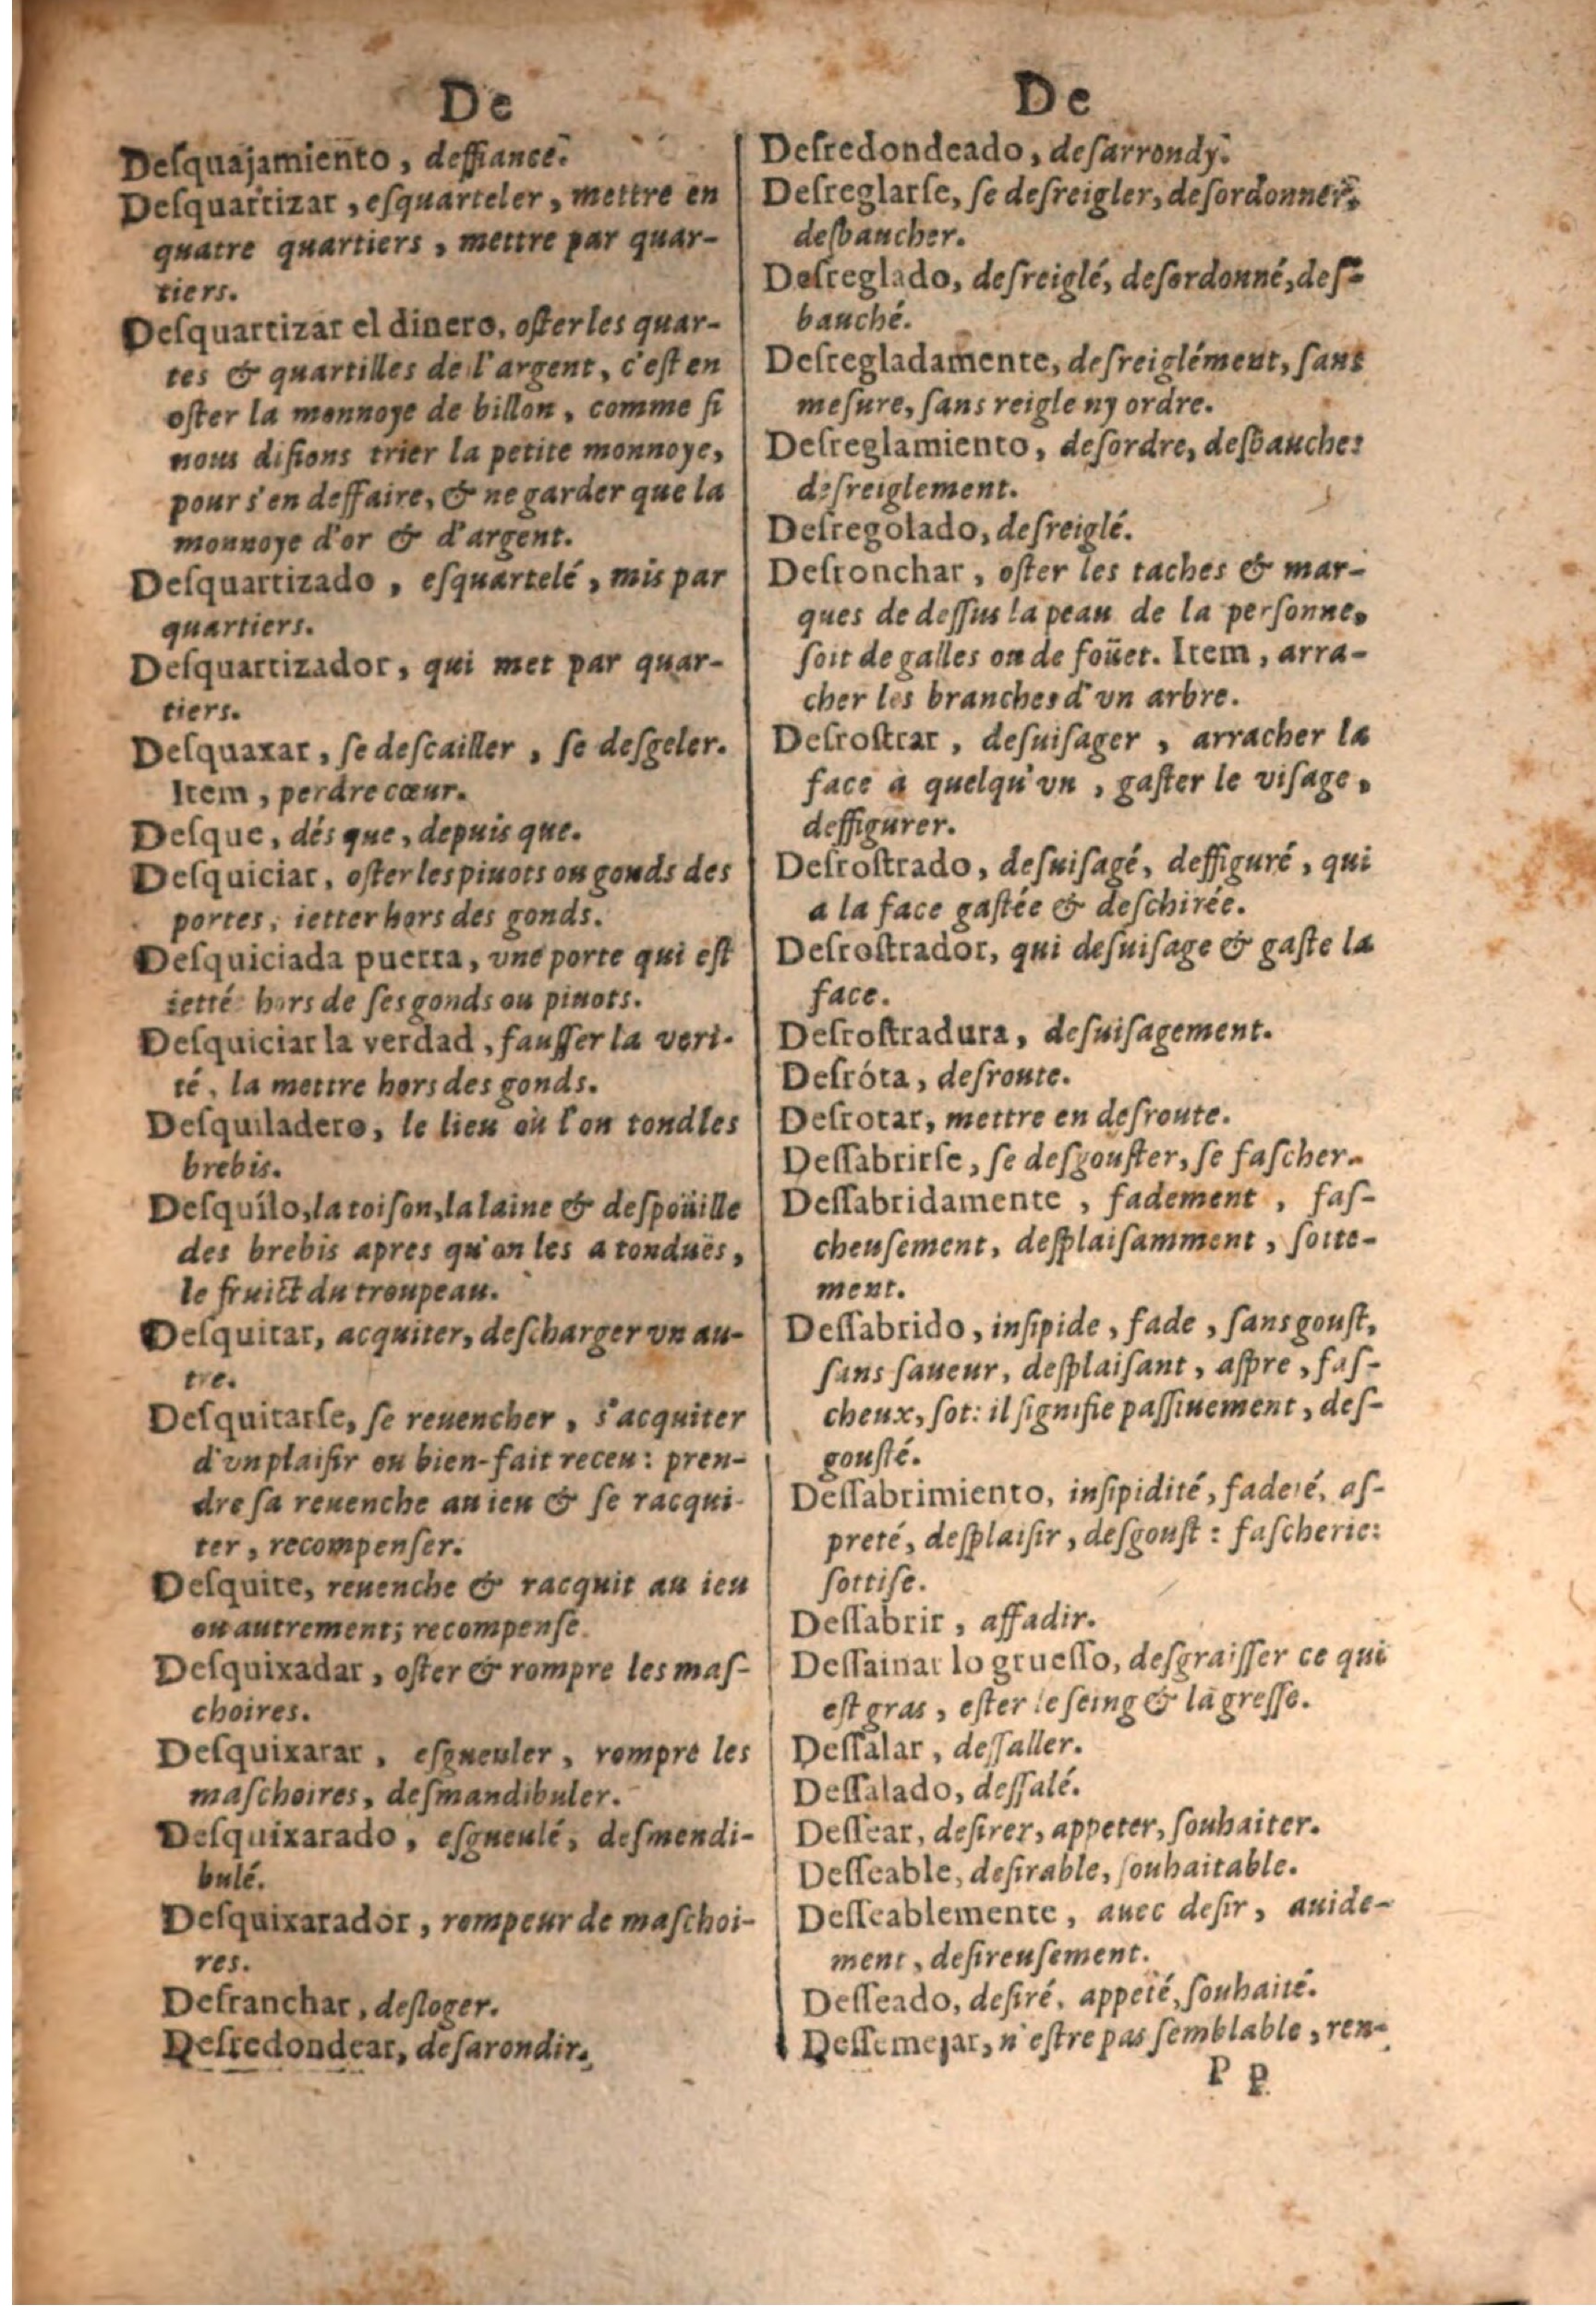 De
Deſquajamiento, deffiance.
Deſquartizar, eſquarteler, mettre en
quatre quartiers, mettre par quar-
tiers.
Deſquartizar el dinero, oſter les quar-
tes & quartilles de l'argent, c'eſt en
oſter la monnoye de billon, comme ſi
nous diſions trier la petite monnoye,
pour s'en deffaire, & ne garder que la
monnoye d'or & d'argent.
Deſquartizado, eſquartelé, mis par
quartiers.
Deſquartizador, qui met par quar-
tiers.
Deſquaxar, ſe deſcailler, ſe deſgeler.
Item, perdre cœur.
Deſque, dés que, depuis que.
Deſquiciar, oſter les piuots ou gonds des
portes, ietter hors des gonds.
Deſquiciada puerta, vne porte qui eſt
ietté hors de ſes gonds ou piuots.
Deſquiciar la verdad, fauſſer la veri-
té, la mettre hors des gonds.
Deſquiladero, le lieu où l'on tond les
brebis.
Deſquílo, la toiſon, la laine & deſpoüille
des brebis apres qu'on les a tonduës,
le fruict du troupeau.
Deſquitar, acquiter, deſcharger vn au-
tre.
Deſquitarſe, ſe reuencher, s'acquiter
d'vn plaiſir ou bien-fait receu: pren-
dre ſa reuenche au ieu & ſe racqui-
ter, recompenſer.
Deſquite, reuenche & racquit au ieu
ou autrement; recompenſe.
Deſquixadar, oſter & rompre les maſ-
choires.
Deſquixarar, eſgueuler, rompre les
maſchoires, deſmandibuler.
Deſquixarado, eſgueulé, deſmendi-
bulé.
Deſquixarador, rompeur de maſchoi-
res.
Deſranchar, deſloger.
Deſredondear, deſarondir.
De
Deſredondeado, deſarrondy.
Deſreglarſe, ſe deſreigler, deſordonner,
deſbaucher.
Deſreglado, deſreiglé, deſordonné, deſ-
bauché.
Deſregladamente, deſreiglément, ſans
meſure, ſans reigle ny ordre.
Deſreglamiento, deſordre, deſbauche:
deſreiglement.
Deſregolado, deſreiglé.
Deſronchar, oſter les taches & mar-
ques de deſſus la peau de la perſonne,
ſoit de galles ou de foüet. Item, arra-
cher les branches d'vn arbre.
Deſroſtrar, deſuiſager, arracher la
face à quelqu'vn, gaſter le viſage,
deffigurer.
Deſroſtrado, deſuiſagé, deffiguré, qui
a la face gaſtée & deſchirée.
Deſroſtrador, qui deſuiſage & gaſte la
face.
Deſroſtradura, deſuiſagement.
Deſróta, deſroute.
Deſrotar, mettre en deſroute.
Deſſabrirſe, ſe deſgouſter, ſe faſcher.
Deſſabridamente, fadement, faſ-
cheuſement, deſplaiſamment, ſotte-
ment.
Deſſabrido, inſipide, fade, ſans gouſt,
ſans ſaueur, deſplaiſant, aſpre, faſ-
cheux, ſot: il ſignifie paſſiuement, deſ-
gouſté.
Deſſabrimiento, inſipidité, fadeté, aſ-
preté, deſplaiſir, deſgouſt: faſcherie:
ſottiſe.
Deſſabrir, affadir.
Deſſainar lo grueſſo, deſgraiſſer ce qui
eſt gras, eſter le ſeing & la greſſe.
Deſſalar, deſſaller.
Deſſalado, deſſalé.
Deſſear, deſirer, appeter, ſouhaiter.
Deſſeable, deſirable, ſouhaitable.
Deſſeablemente, auec deſir, auide-
ment, deſireuſement.
Deſſeado, deſiré, appeté, ſouhaité.
Deſſemejar, n'eſtre pas ſemblable, ren-
P p